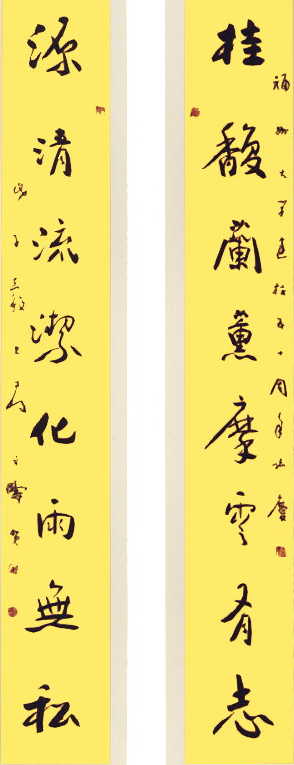 福州大学建校五十周年誌慶
桂馥蘭薰摩雲有志
源清流潔化雨無私